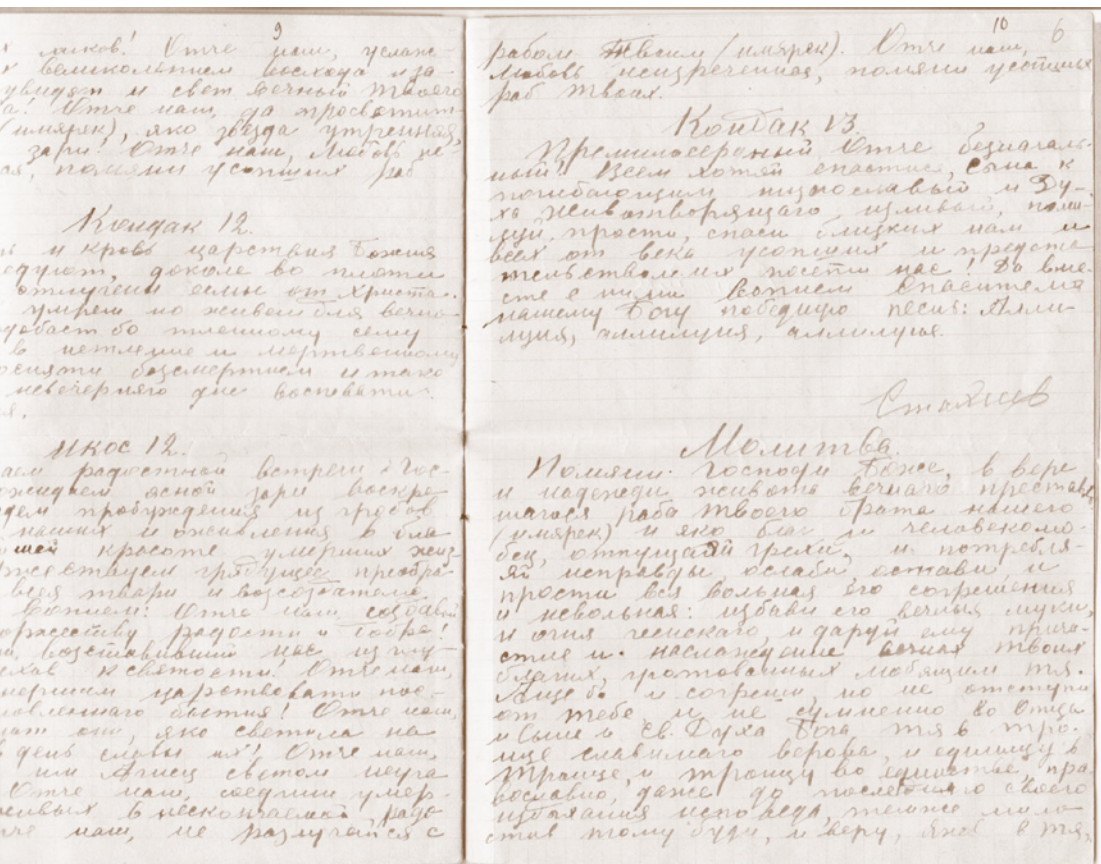 9
ликов! Отче наш, услаж-
великолепием восхода и за-
увидят и свет вечный Твоего
Отче наш, да просветит
(имярек), яко звезда утренняя,
зари! Отче наш, Любовь не-
ая, помяни усопших раб
Кондак 12.
и кровь царствия Божия
едуют, доколе во плоти
отлучени есмы от Христа.
умрем но живем для вечно-
добает бо тленному сему
в нетление и мертвенному
безсмертием и тако
невечерняго дне
Икос 12.
аем радостной встречи с Гос-
ожидаем ясной зари воскре-
дем пробуждения из гробов
наших и оживления в бла-
шей красоте умерших
грядущее преобра-
всея твари и возсоздателю
вопием: Отче наш, создавый
торжеству радости и добре!
возставивый нас из
к святости! Отче наш,
царствовати
новленнаго бытия! Отче наш,
они, яко светила на
день славы их! Отче наш,
им Агнец светом
Отче наш, соедини умер-
в нескончаемой радо
наш, не разлучайся с
10 6
рабом Твоим (имярек). Отче наш,
Любовь неизреченная, помяни усопших
раб Твоих.
Кондак 13.
Премилосердный Отче безначаль-
ный Всем хотяй спастися, Сына к
погибающим низпославый и Ду-
ха животворящаго изливый, поми-
луй, прости, спаси близких нам и
всех от века усопших и предста
тельством их посети нас! Да вме-
сте с ними вопием Спасителю
нашему Богу победную песнь: Алли-
луия, аллилуия, аллилуия.
Молитва.
Помяни Господи Боже, в вере
и надежди живота вечнаго преставль
шагося раба Твоего брата нашего
(имярек) и яко благ и человеколю-
бец, отпущаяй грехи, и потребля-
яй неправды ослаби, остави и
прости вся вольная его согрешения
и невольная: избави его вечныя муки,
и огня геенскаго, и даруй ему прича-
стие и наслаждение вечных твоих
благих, уготованных любящим тя.
Аще бо и согреши, но не отступи
от тебе, и не сумненно во Отца
и Сына и Св. Духа Бога тя в тро-
ице славимаго верова, и единицу в
Троице, и троицу во единстве, пра
вославно, даже до последняго своего
издыхания исповеда, темже мило
стив тому буди, и веру, яже в тя,